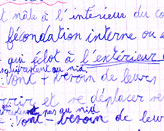 mâle à l'intérieur du co
fécondation interne ou e
qui éclot à l'extérieur
au nid
vont + besoin de leur
et se déplacer
pas au nid
: vont besoin de leu